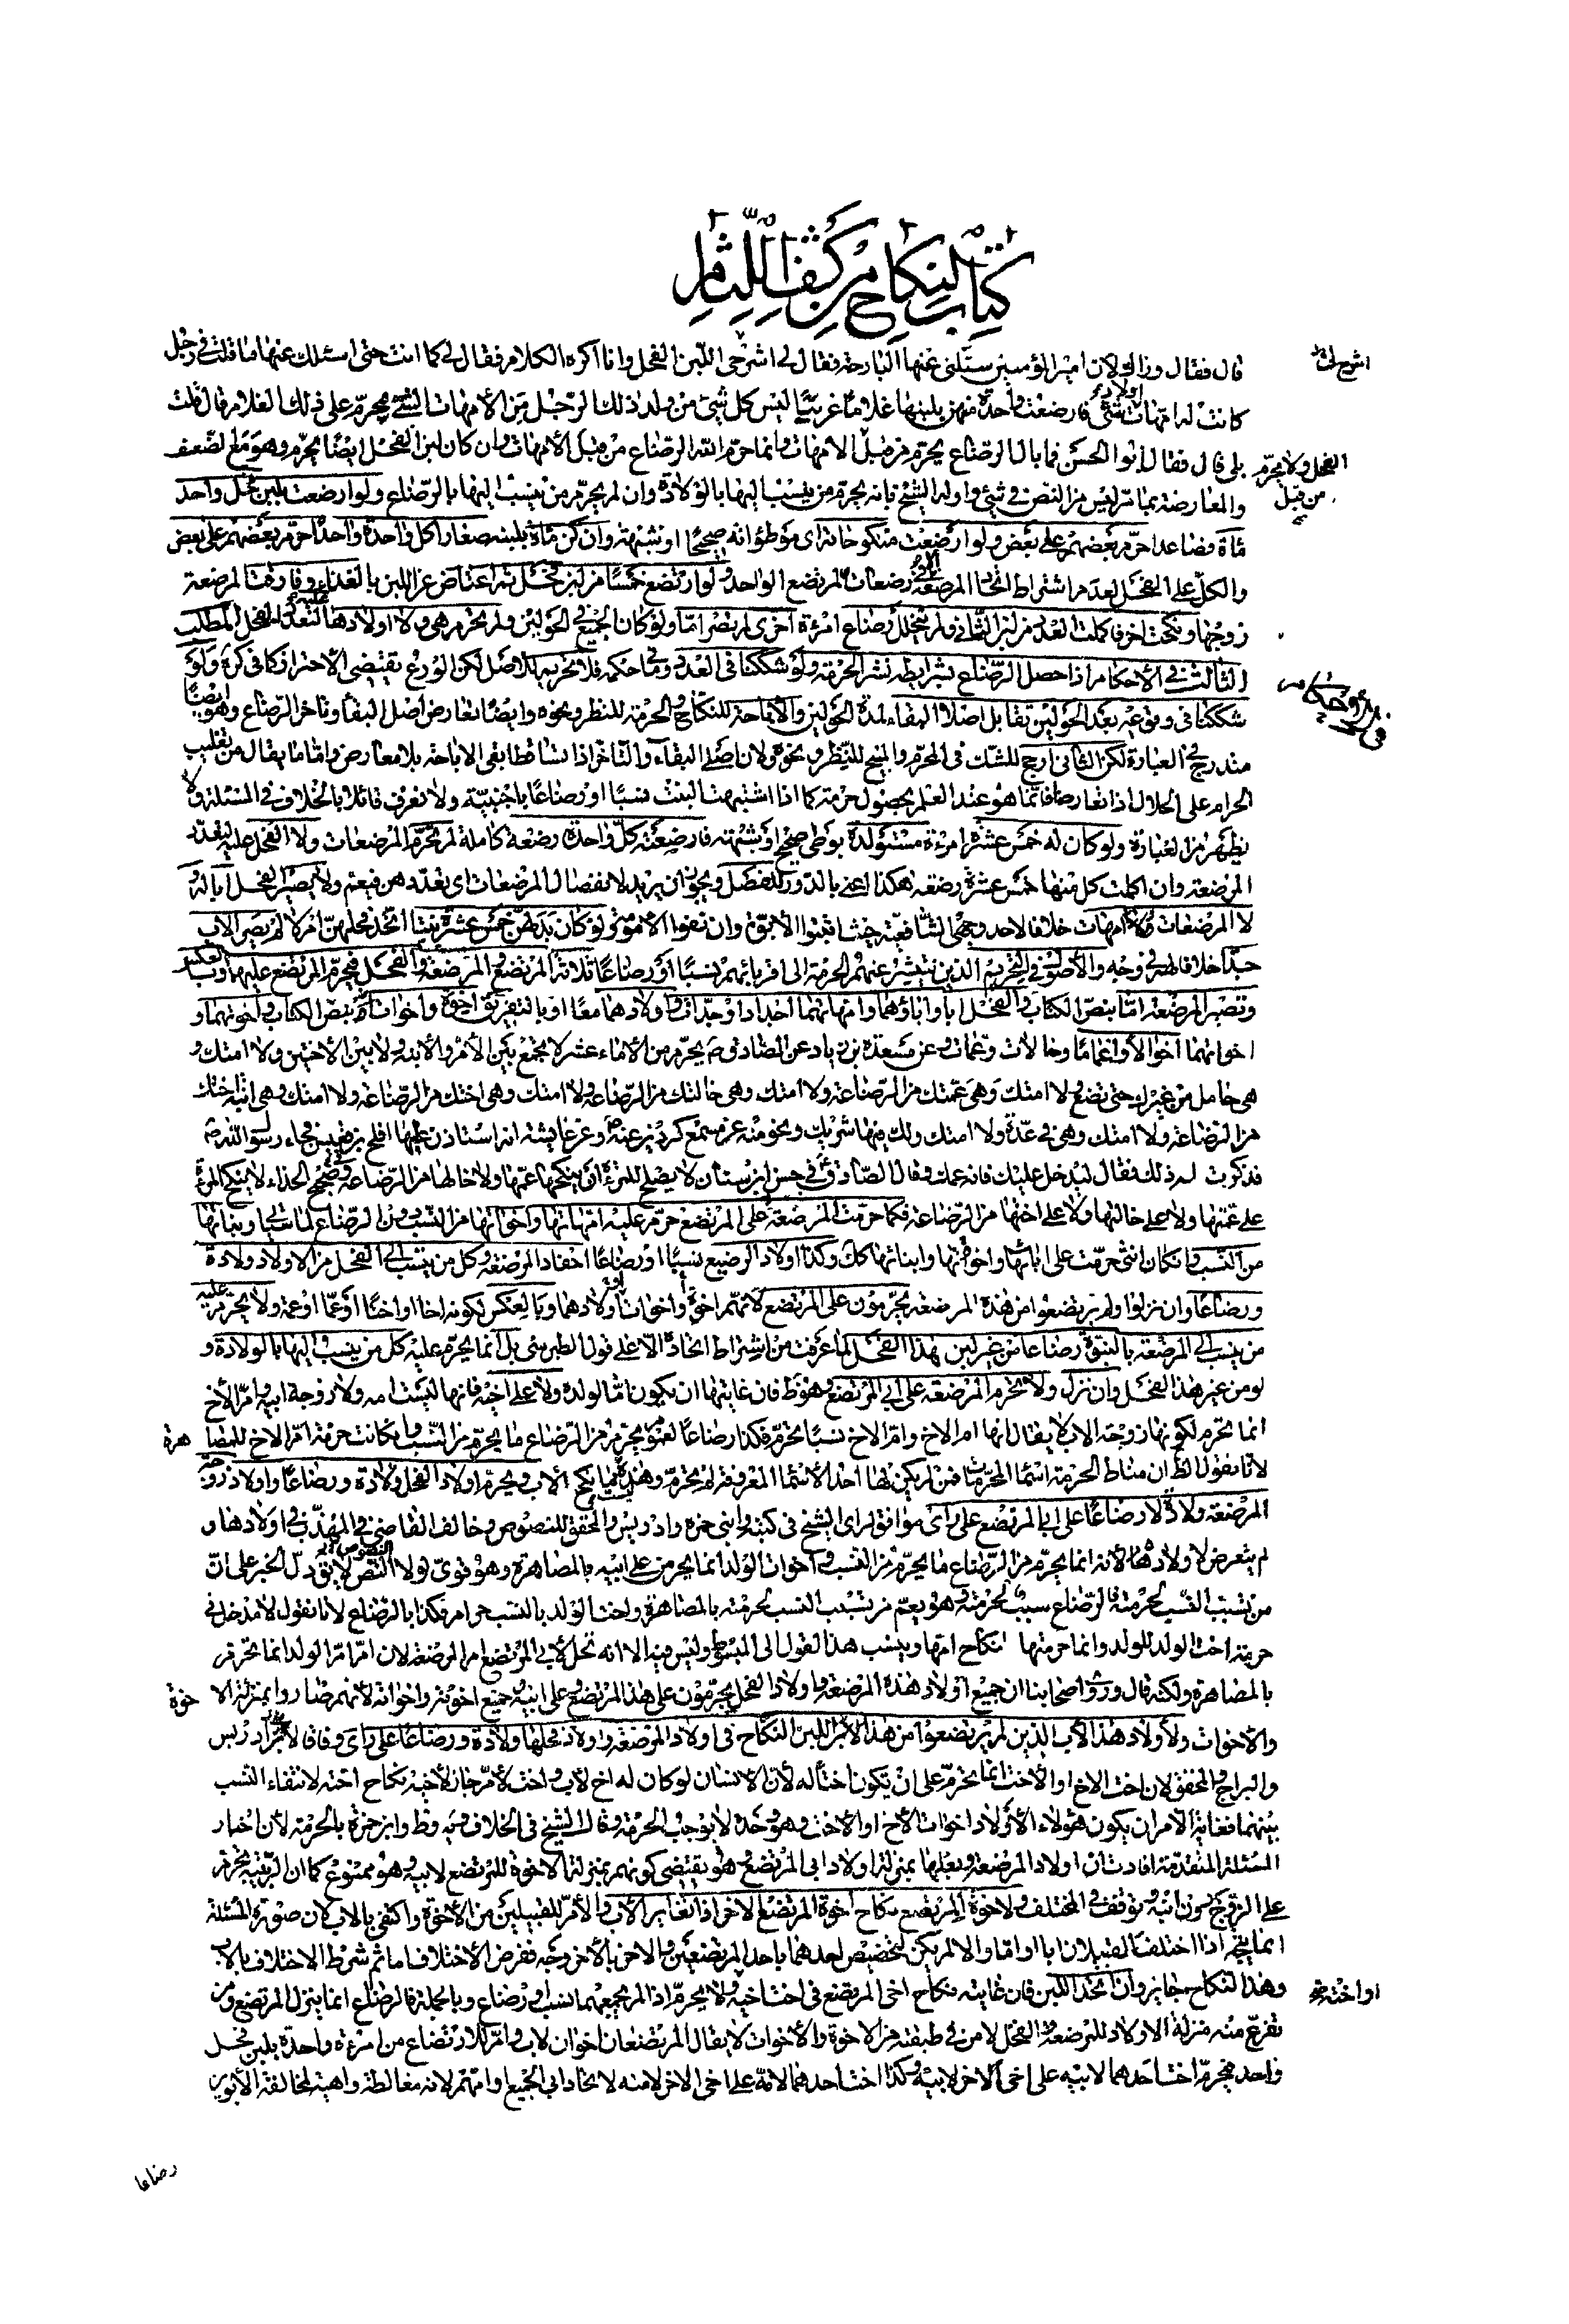 كتاب النكاح من كشف اللثام
قال فقال وذاك لان امير المؤمنين سئلنى عنها البارحة فقال لى اشرح لى اللبن الفحل وانا اكره الكلام فقال لى كما انت حتى اسئلك عنها ما قلت فى رجل
كانت له امهات اولاد شتى فارضعت واحدة منهن بلبنها غلاما غريبا اليس كل شئ من ولد ذلك الرجل من الأمهات الشتى محرم على ذلك الغلام قال قلت
بلى قال فقال ابو الحسن فما بال الرضاع يحرم من قبل الفحل ولا يحرم من قبل الامهات وانما حرم الله الرضاع من قبل الأمهات وان كان لبن الفحل ايضا يحرم وهو مع الضعف
والمعارضة بما مر ليس من النص فى شئ واوله الشيخ بانه يحرم من ينسب اليها بالولادة وان لم يحرم من ينسب اليها بالرضاع ولو ارضعت بلبن فحل واحد
مأة فصاعدا حرم بعضهم على بعض ولو ارضعت منكوحاته اى موطؤاته صحيحا او شبهة وان كن مأة بلبنه صغارا كل واحدة واحدا حرم بعضهم على بعض
والكل على الفحل لعدم اشتراط اتحاد المرضعة الا فى رضعات المرتضع الواحد ولو ارتضع خمسا من لبن فحل ثم اعتاض عن اللبن بالغذاء وفارقت المرضعة
زوجها ونكحت اخر فاكملت العدد من لبن الثانى ولم يتخلل رضاع امرءة اخرى لم تصر اما ولو كان الجميع فى الحولين ولم تحرم هى ولا اولادها عليه لتعدد الفحل المطلب
الثالث فى الأحكام اذا حصل الرضاع بشرايطه نشر الحرمة ولو شككنا فى العدد وما فى حكمه فلا تحريم للاصل لكن الورع يقتضى الاحتراز كما فى كره ولو
شككنا فى وقوعه بعد الحولين تقابل اصلا البقاء لمدة الحولين والأباحة للنكاح والحرمة للنظر ونحوه وايضا تعارض اصل البقاء وتاخر الرضاع وهو ايضا
مندرج فى العبارة لكن الثانى ارجح للشك فى المحرم والمبيح للنظر ونحوه ولان اصلى البقاء والتأخر اذا تساقطا بقى الاباحة بلا معارض واما ما يقال من تغليب
الحرام على الحلال اذا تعارضا فانما هو عند العلم بحصول حرمة كما اذا اشتبهت البنت نسبا او رضاعا باجنبية ولا نعرف قائلا بالخلاف فى المسئلة ولا
يظهر من العبارة ولو كان له خمس عشرة امرءة مستولدة بوطئ صحيح او بشبهة فارضعته كل واحدة رضعة كاملة لم تحرم المرضعات ولا الفحل عليه لتعدد
المرضعة وان اكملت كل منها خمس عشرة رضعة هكذا اعنى بالدور للفصل ويجوز ان يريد لانفصال المرضعات اى تعددهن فيعم ولا يصير الفحل ابا له
لا المرضعات امهات خلافا لاحد وجهى الشافعية حيث اثبتوا الأبوة وان نفوا الأمومة ولو كان بدلهن خمس عشرة بنتا اتحد فحلهن ام لا لم يصر الاب
جدا خلافا لهم فى وجه والأصول فى التحريم الذين ينتشر عنهم الحرمة الى اقربائهم نسبا او رضاعا ثلاثة المرتضع والمرضعة والفحل فيحرم المرتضع عليهما وبالعكس
وتصير المرضعة اما بنص الكتاب والفحل ابا واباؤهما وامهاتهما اجدادا وجدات واولادهما معا او بالتفريق اخوة واخوات بنص الكتاب واخوتهما و
اخواتهما اخوالا واعماما وخالات وعمات وعن مسعدة بن زياد عن الصادق ع يحرم من الاماء عشر لا يجمع بين الأم والابنة ولا بين الأختين ولا امتك و
هى حامل من غيرك حتى تضع ولا امتك وهى عمتك من الرضاعة ولا امتك وهى خالتك من الرضاعة ولا امتك وهى اختك من الرضاعة ولا امتك وهى ابنة اختك
من الرضاعة ولا امتك وهى فى عدة ولا امتك ولك فيها شريك ونحو منه عن مسمع كردين عنه ع وعن عايشة انه استاذن عليها افلح بن قعيس فجاء رسول الله ص
فذكرت له ذلك فقال ليدخل عليك فانه عمك وقال الصادق ع فى حسن ابن سنان لا يصلح للمرءة ان ينكحها عمها ولا خالها من الرضاعة وفى صحيح الحذاء لا ينكح المرءة
على عمتها ولا على خالتها ولا على اختها من الرضاعة فكما حرمت المرضعة على المرتضع حرم عليه امهاتها واخواتها من النسب ومن الرضاع لما سيأتى وبناتها
من النسب وان كان انثى حرمت على ابائها واخوتها وابنائها كك وكذا اولاد الرضيع نسبا او رضاعا احفاد المرضعة وكل من ينسب الى الفحل من الاولاد ولادة
ورضاعا وان نزلوا ولم يرتضعوا من هذه المرضعة يحرمون على المرتضع لانهم اخوة واخوات او اولادهما وبالعكس لكونه اخا او اختا او عما او عمة ولا يحرم عليه
من ينسب الى المرضعة بالبنوة رضاعا من غير لبن هذا الفحل لما عرفت من اشتراط اتحاده الا على قول الطبرسى بل انما يحرم عليه كل من ينسب اليها بالولادة و
لو من غير هذا الفحل وان نزل ولا تحرم المرضعة على ابى المرتضع وهو ظ فان غايتها ان يكون اما لولده ولا على اخيه فانها ليست امه ولا زوجة ابيه وام الأخ
انما تحرم لكونها زوجة الاب لا يقال انها ام الاخ وام الاخ نسبا تحرم فكذا رضاعا لعموم يحرم من الرضاع ما يحرم من النسب وان كانت حرمة ام الاخ للمصاهرة
لانا نقول الظ ان مناط الحرمة اسماء المحرمات فمن لم يكن لها احد الأسماء المعروفة لم يحرم وهذه انما ينكح الأب ويحرم اولاد الفحل ولادة ورضاعا واولاد زوجته
المرضعة ولادة لا رضاعا على ابى المرتضع على رأى موافق لراى الشيخ فى كتبه وابنى حمزة وادريس والمحقق للنصوص وخالف القاضى فى المهذب فى اولادها و
لم يتعرض لاولاده لأنه انما يحرم من الرضاع ما يحرم من النسب واخوات الولد انما يحرمن على ابيه بالمصاهرة وهو قوى لولا النصوص لا يق دل الخبر على ان
من تسبب النسب لحرمته فالرضاع سبب لحرمته وهو يعم من تسبب النسب لحرمته بالمصاهرة واخت الولد بالنسب حرام فكذا بالرضاع لانا نقول لا مدخل فى
حرمة اخت الولد للولد وانما حرمتها نكاح امها وينسب هذا القول الى المبسوط وليس فيه الا انه تحل لأبى المرتضع ام المرضعة لان ام ام الولد انما تحرم
بالمصاهرة ولكنه قال وروى اصحابنا ان جميع اولاد هذه المرضعة واولاد الفحل يحرمون على هذا المرتضع وعلى ابيه وجميع اخوته واخواته لانهم صاروا بمنزلة الاخوة
والاخوات ولأولاد هذا الأب الذين لم يرتضعوا من هذا اللبن النكاح فى اولاد المرضعة واولاد فحلها ولادة ورضاعا على رأى وفاقا لابن ادريس
والبراج والمحقق لان اخت الاخ او الأخت انما تحرم على ان تكون اختا له لأن الانسان لو كان له اخ لأب واخت لأم جاز لأخيه نكاح اخته لانتفاء النسب
بينهما فغاية الامر ان يكون هؤلاء الأولاد اخوات الأخ او الأخت وهو وحده لا يوجب الحرمة وقال الشيخ فى الخلاف ويه وط وابن حمزة بالحرمة لأن اخبار
المسئلة المتقدمة افادت ان اولاد المرضعة وبعلها بمنزلة اولاد ابى المرتضع وهو يقتضى كونهم بمنزلة الاخوة للمرتضع لابيه وهو ممنوع كما ان الربيبة يحرم
على الزوج دون ابنه وتوقف فى المختلف ولاخوة المرتضع نكاح اخوة المرتضع الاخر اذا تغاير الأب والأم للقبيلين من الأخوة واكتفى بالاب كان صورة المسئلة
انما يتم اذا اختلف القبيلان ابا او اما والا لم يكن لتخصيص احدهما باحد المرتضعين والاخر بالأخر وجه ففرض الأختلاف اما ثم شرط الاختلاف بالأب
وهذا النكاح جايز وان اتحد اللبن فان غايته نكاح اخى المرتضع فى اخت اخيه او اخته ولا يحرم اذا لم يجمعهما نسب او رضاع وبالجملة فالرضاع انما ينزل المرتضع ومن
تفرع منه منزلة الاولاد للمرضعة والفحل لا من فى طبقته من الاخوة والأخوات لا يقال المرتضعان اخوان لاب وام للارتضاع من امرءة واحدة بلبن فحل
واحد فيحرم اخت احدهما لابيه على اخى الاخر لابيه وكذا اخت احدهما لامه على اخى الاخر لامه لاتحاد ابى الجميع او امهم لانه مغالطة واهية لمخالفة الأبوين
رضاعا